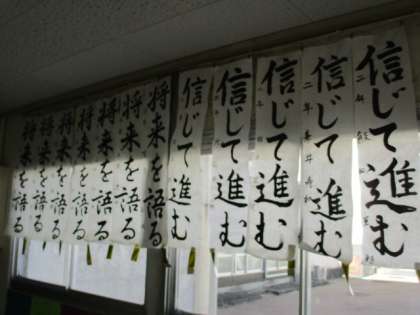 信じて進む
信じて進む
二年
信じて進む
信じて進む
信じて進む
将来を語る
将来を語る
将来を語る
将来を語る
将来を語る
将来を語る
将来を語る